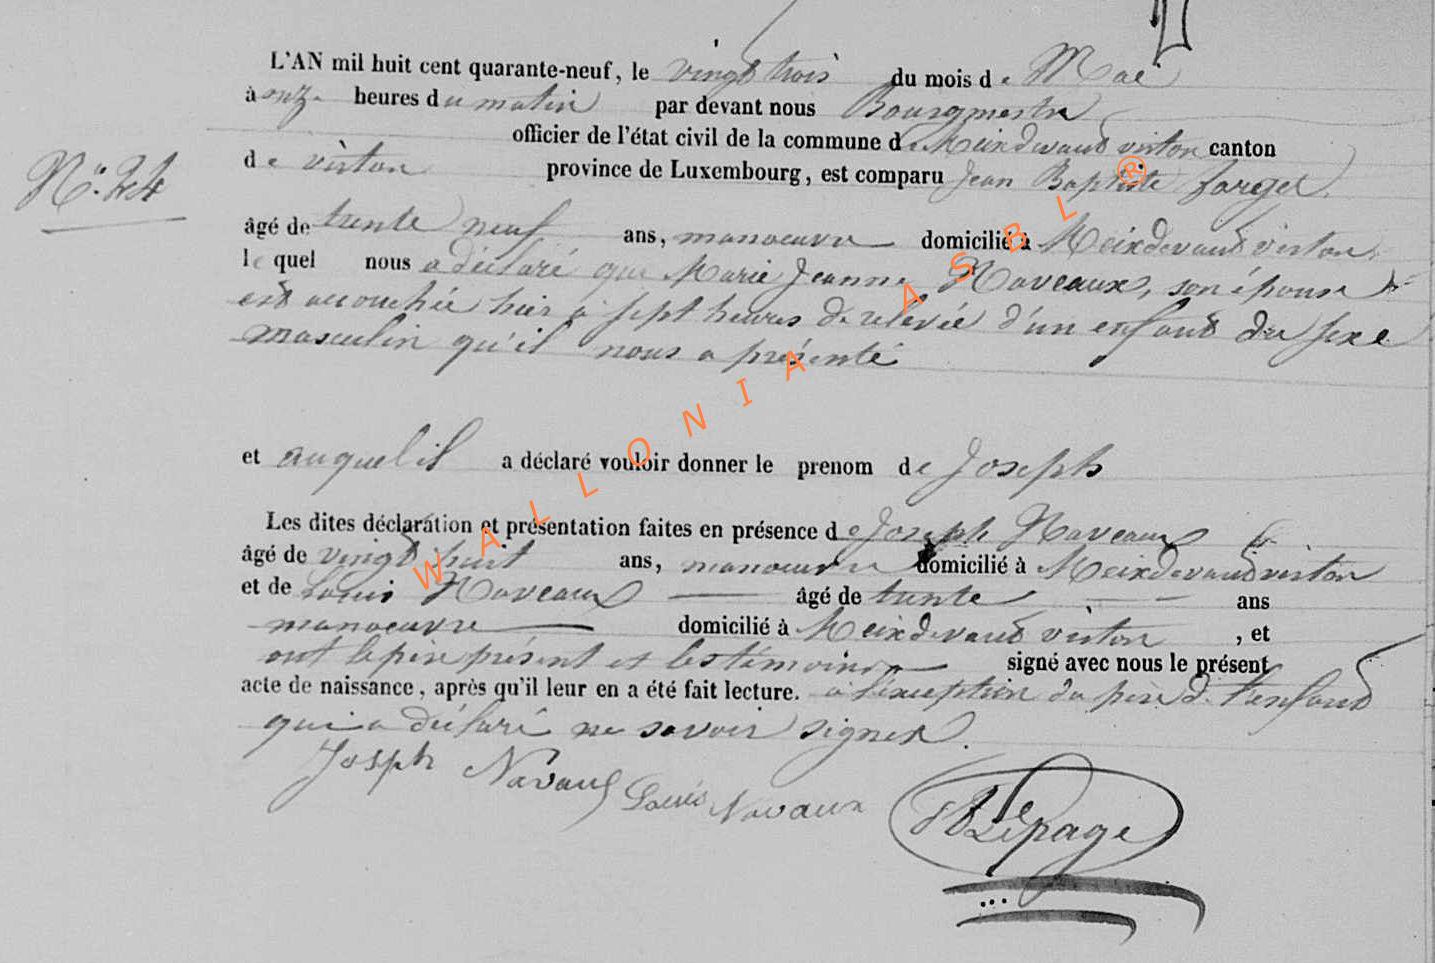 L'AN mil huit cent quarante-neuf, le vingt trois du mois de Mai
à onze heures du matin par devant nous Bourgmestre
officier de l'état civil de la commune de Meixdevant virton canton
de virton province de Luxembourg, est comparu Jean Baptiste
N° 24
âgé de trente neuf ans, manoeuvre domicilié à Meixdevant virton
le quel nous a déclaré que Marie Jeanne Naveaux, son épouse
est accouchée hier à sept heures de relevée d'un enfant du sexe
masculin qu'il nous a présenté
et auquel il a déclaré vouloir donner le prenom de Joseph
Les dites déclaration et présentation faites en présence de Joseph Naveaux
âgé de vingt huit ans, manoeuvre domicilié à Meixdevant virton
et de Louis Naveaux âgé de trente ans
manoeuvre domicilié à Meixdevant virton, et
ont le père présent et les témoins signé avec nous le présent
acte de naissance, après qu'il leur en a été fait lecture. à l'exception du père de l'enfant
qui a déclaré ne savoir signer.
Joseph Navaux Louis Navaux
Lepage
WALLONIA ASBL ®